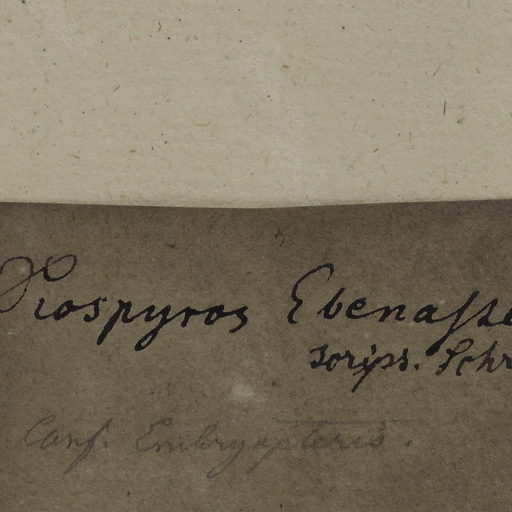 Diospyros Ebenaste
scrips. Schr
Conf. Embryopteris.